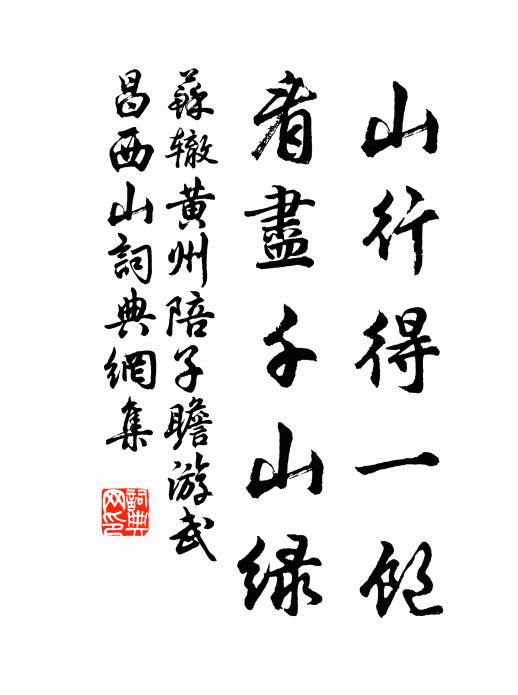 山行得一飽
看盡千山緑
蘇辙黄州陪子瞻游武
昌西山詞典網集
詞典
网印